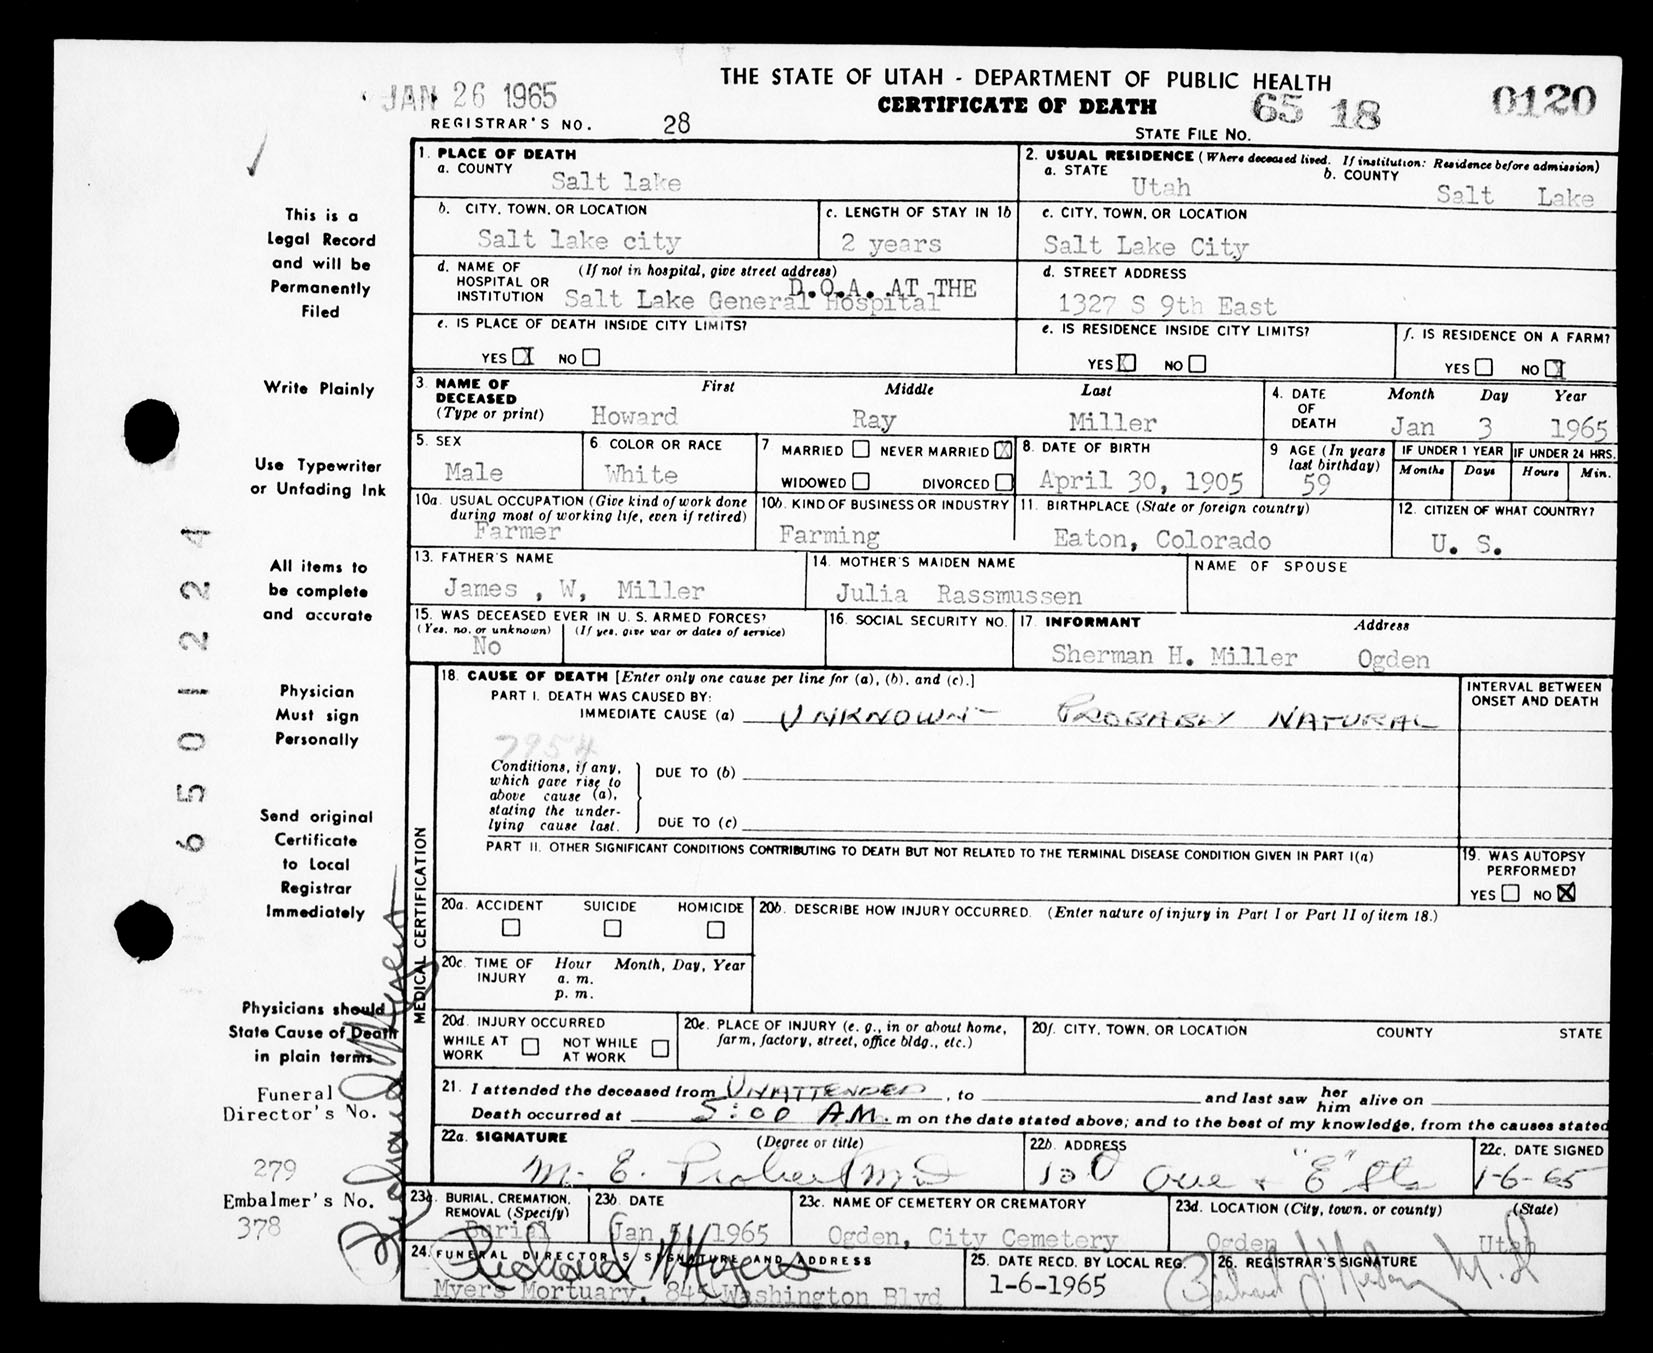 THE STATE OF UTAH - DEPARTMENT OF PUBLIC HEALTH
CERTIFICATE OF DEATH
JAN 26 1965
65 18
0120
REGISTRAR'S NO. 28
STATE FILE No.
1. PLACE OF DEATH
a. COUNTY Salt lake
2. USUAL RESIDENCE (Where deceased lived. If institution: Residence before admission)
a. STATE Utah b. COUNTY Salt Lake
b. CITY, TOWN, OR LOCATION Salt lake city
c. LENGTH OF STAY IN 1b 2 years
c. CITY, TOWN, OR LOCATION Salt Lake City
d. NAME OF HOSPITAL OR INSTITUTION (If not in hospital, give street address)
D.O.A. AT THE
Salt Lake General Hospital
d. STREET ADDRESS
1327 S 9th East
e. IS PLACE OF DEATH INSIDE CITY LIMITS?
YES X NO
e. IS RESIDENCE INSIDE CITY LIMITS?
YES X NO
f. IS RESIDENCE ON A FARM?
YES NO X
3. NAME OF DECEASED (Type or print)
First Middle Last
Howard Ray Miller
4. DATE OF DEATH
Month Day Year
Jan 3 1965
5. SEX Male
6 COLOR OR RACE White
7 MARRIED NEVER MARRIED X
WIDOWED DIVORCED
8. DATE OF BIRTH April 30, 1905
9 AGE (In years last birthday) 59
IF UNDER 1 YEAR IF UNDER 24 HRS.
Months Days Hours Min.
10a. USUAL OCCUPATION (Give kind of work done during most of working life, even if retired)
Farmer
10b. KIND OF BUSINESS OR INDUSTRY
Farming
11. BIRTHPLACE (State or foreign country)
Eaton, Colorado
12. CITIZEN OF WHAT COUNTRY?
U. S.
13. FATHER'S NAME
James , W, Miller
14. MOTHER'S MAIDEN NAME
Julia Rassmussen
NAME OF SPOUSE
15. WAS DECEASED EVER IN U. S. ARMED FORCES?
(Yes, no, or unknown) (If yes, give war or dates of service)
No
16. SOCIAL SECURITY NO.
17. INFORMANT Address
Sherman H. Miller Ogden
18. CAUSE OF DEATH [Enter only one cause per line for (a), (b), and (c).]
PART I. DEATH WAS CAUSED BY:
IMMEDIATE CAUSE (a) UNKNOWN - PROBABLY NATURAL
INTERVAL BETWEEN ONSET AND DEATH
7954
Conditions, if any, which gave rise to above cause (a), stating the underlying cause last.
DUE TO (b)
DUE TO (c)
PART II. OTHER SIGNIFICANT CONDITIONS CONTRIBUTING TO DEATH BUT NOT RELATED TO THE TERMINAL DISEASE CONDITION GIVEN IN PART I(a)
19. WAS AUTOPSY PERFORMED?
YES NO X
MEDICAL CERTIFICATION
20a. ACCIDENT SUICIDE HOMICIDE
20b. DESCRIBE HOW INJURY OCCURRED. (Enter nature of injury in Part I or Part II of item 18.)
20c. TIME OF INJURY Hour Month, Day, Year
a. m.
p. m.
20d. INJURY OCCURRED
WHILE AT WORK NOT WHILE AT WORK
20e. PLACE OF INJURY (e. g., in or about home, farm, factory, street, office bldg., etc.)
20f. CITY, TOWN, OR LOCATION COUNTY STATE
21. I attended the deceased from UNATTENDED, to and last saw her him alive on
Death occurred at 5:00 A.M. m on the date stated above; and to the best of my knowledge, from the causes stated
22a. SIGNATURE (Degree or title)
M. E.
22b. ADDRESS
22c. DATE SIGNED
1-6-65
23a. BURIAL, CREMATION, REMOVAL (Specify)
Burial
23b. DATE
Jan 1965
23c. NAME OF CEMETERY OR CREMATORY
Ogden, City Cemetery
23d. LOCATION (City, town, or county) (State)
Ogden Utah
24. FUNERAL DIRECTOR'S SIGNATURE AND ADDRESS
Richard Myers
Myers Mortuary, 845 Washington Blvd
25. DATE RECD. BY LOCAL REG.
1-6-1965
26. REGISTRAR'S SIGNATURE
This is a
Legal Record
and will be
Permanently
Filed
Write Plainly
Use Typewriter
or Unfading Ink
All items to
be complete
and accurate
Physician
Must sign
Personally
Send original
Certificate
to Local
Registrar
Immediately
Physicians should
State Cause of Death
in plain terms
Funeral
Director's No.
279
Embalmer's No.
378
65 01 2224